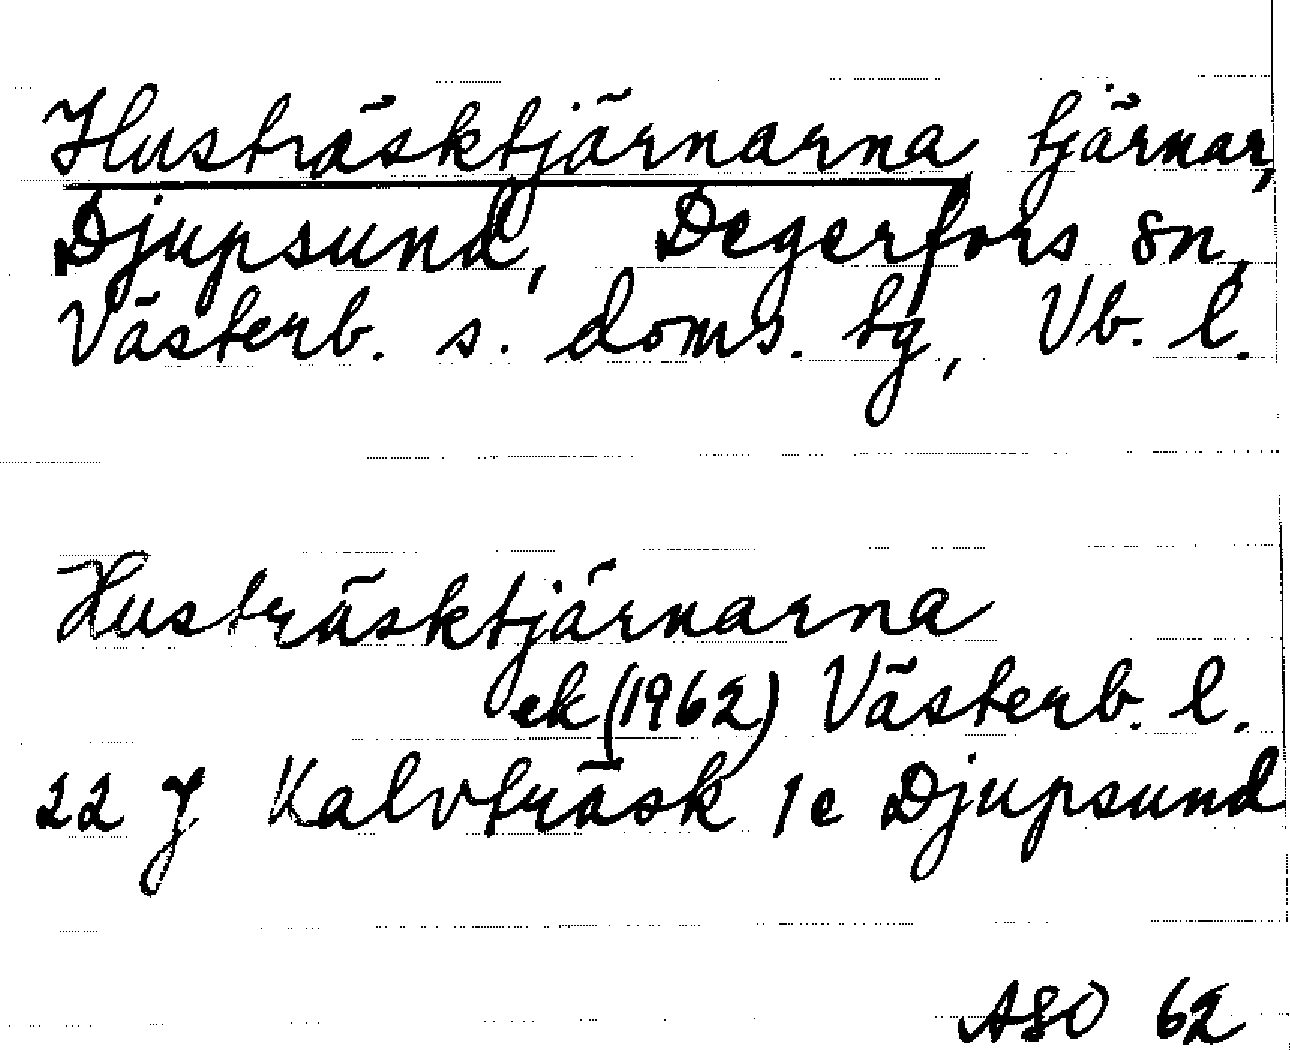 Husträsktjärnarna tjärnar,
Djupsund, Degerfors sn,
Västerb. s. doms. tg, Vb. l.
Husträsktjärnarna
ek (1962) Västerb. l.
22 J Kalvträsk 1e Djupsund
ASO 62